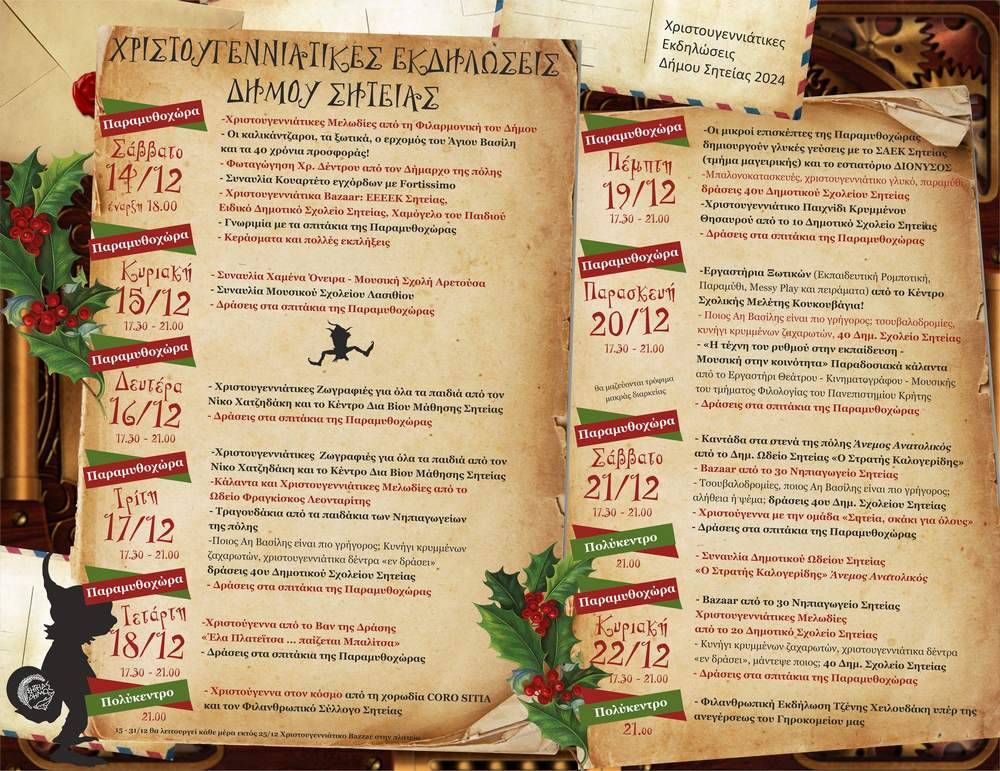 ΧΡΙΣΤΟΥΓΕΝΝΙΑΤΙΚΕΣ ΕΚΔΗΛΩΣΕΙΣ
ΔΗΜΟΥ ΣΗΤΕΙΑΣ
Παραμυθοχώρα
Σάββατο
14/12
έναρξη 18.00
-Χριστουγεννιάτικες Μελωδίες από τη Φιλαρμονική του Δήμου
- Οι καλικάντζαροι, τα ξωτικά, ο ερχομός του Άγιου Βασίλη
και τα 40 χρόνια προσφοράς!
- Φωταγώγηση Χρ. Δέντρου από τον Δήμαρχο της πόλης
- Συναυλία Κουαρτέτο εγχόρδων με Fortissimo
- Χριστουγεννιάτικα Bazaar: ΕΕΕΕΚ Σητείας,
Ειδικό Δημοτικό Σχολείο Σητείας, Χαμόγελο του Παιδιού
- Γνωριμία με τα σπιτάκια της Παραμυθοχώρας
- Κεράσματα και πολλές εκπλήξεις
Παραμυθοχώρα
Κυριακή
15/12
17.30 - 21.00
- Συναυλία Χαμένα Όνειρα - Μουσική Σχολή Αρετούσα
- Συναυλία Μουσικού Σχολείου Λασιθίου
- Δράσεις στα σπιτάκια της Παραμυθοχώρας
Παραμυθοχώρα
Δευτέρα
16/12
17.30 - 21.00
- Χριστουγεννιάτικες Ζωγραφιές για όλα τα παιδιά από τον
Νίκο Χατζηδάκη και το Κέντρο Δια Βίου Μάθησης Σητείας
- Δράσεις στα σπιτάκια της Παραμυθοχώρας
Παραμυθοχώρα
Τρίτη
17/12
17.30 - 21.00
-Χριστουγεννιάτικες Ζωγραφιές για όλα τα παιδιά από τον
Νίκο Χατζηδάκη και το Κέντρο Δια Βίου Μάθησης Σητείας
-Κάλαντα και Χριστουγεννιάτικες Μελωδίες από το
Ωδείο Φραγκίσκος Λεονταρίτης
- Τραγουδάκια από τα παιδάκια των Νηπιαγωγείων
της πόλης
-Ποιος Αη Βασίλης είναι πιο γρήγορος; Κυνήγι κρυμμένων
ζαχαρωτών, χριστουγεννιάτικα δέντρα «εν δράσει»
δράσεις 4ου Δημοτικού Σχολείου Σητείας
- Δράσεις στα σπιτάκια της Παραμυθοχώρας
Παραμυθοχώρα
Τετάρτη
18/12
17.30 - 21.00
-Χριστούγεννα από το Βαν της Δράσης
«Έλα Πλατεΐτσα ... παίζεται Μπαλίτσα»
- Δράσεις στα σπιτάκια της Παραμυθοχώρας
Πολύκεντρο
21.00
- Χριστούγεννα στον κόσμο από τη χορωδία CORO SITIA
και τον Φιλανθρωπικό Σύλλογο Σητείας
15 - 31/12 θα λειτουργεί κάθε μέρα εκτός 25/12 Χριστουγεννιάτικο Bazzar στην πλατεία
Χριστουγεννιάτικες
Εκδηλώσεις
Δήμου Σητείας 2024
Παραμυθοχώρα
Πέμπτη
19/12
17.30 - 21.00
-Οι μικροί επισκέπτες της Παραμυθοχώρας
δημιουργούν γλυκές γεύσεις με το ΣΑΕΚ Σητείας
(τμήμα μαγειρικής) και το εστιατόριο ΔΙΟΝΥΣΟΣ
-Μπαλονοκατασκευές, χριστουγεννιάτικο γλυκό, παραμύθι,
δράσεις 4ου Δημοτικού Σχολείου Σητείας
-Χριστουγεννιάτικο Παιχνίδι Κρυμμένου
Θησαυρού από το 1ο Δημοτικό Σχολείο Σητείας
- Δράσεις στα σπιτάκια της Παραμυθοχώρας
Παραμυθοχώρα
Παρασκευή
20/12
17.30 - 21.00
θα μαζεύονται τρόφιμα
μακράς διαρκείας
-Εργαστήρια Ξωτικών (Εκπαιδευτική Ρομποτική,
Παραμύθι, Messy Play και πειράματα) από το Κέντρο
Σχολικής Μελέτης Κουκουβάγια!
- Ποιος Αη Βασίλης είναι πιο γρήγορος; τσουβαλοδρομίες,
κυνήγι κρυμμένων ζαχαρωτών, 4ο Δημ. Σχολείο Σητείας
- «Η τέχνη του ρυθμού στην εκπαίδευση -
Μουσική στην κοινότητα» Παραδοσιακά κάλαντα
από το Εργαστήρι Θεάτρου - Κινηματογράφου - Μουσικής
του τμήματος Φιλολογίας του Πανεπιστημίου Κρήτης
- Δράσεις στα σπιτάκια της Παραμυθοχώρας
Παραμυθοχώρα
Σάββατο
21/12
17.30 - 21.00
- Καντάδα στα στενά της πόλης Άνεμος Ανατολικός
από το Δημ. Ωδείο Σητείας «Ο Στρατής Καλογερίδης»
- Bazaar από το 3ο Νηπιαγωγείο Σητείας
- Τσουβαλοδρομίες, ποιος Αη Βασίλης είναι πιο γρήγορος;
αλήθεια ή ψέμα; δράσεις 4ου Δημ. Σχολείου Σητείας
- Χριστούγεννα με την ομάδα «Σητεία, σκάκι για όλους»
- Δράσεις στα σπιτάκια της Παραμυθοχώρας
Πολύκεντρο
21.00
- Συναυλία Δημοτικού Ωδείου Σητείας
«Ο Στρατής Καλογερίδης» Άνεμος Ανατολικός
Παραμυθοχώρα
Κυριακή
22/12
17.30 - 21.00
- Bazaar από το 3ο Νηπιαγωγείο Σητείας
Χριστουγεννιάτικες Μελωδίες
από το 2ο Δημοτικό Σχολείο Σητείας
- Κυνήγι κρυμμένων ζαχαρωτών, χριστουγεννιάτικα δέντρα
«εν δράσει», μάντεψε ποιος; 4ο Δημ. Σχολείο Σητείας
- Δράσεις στα σπιτάκια της Παραμυθοχώρας
Πολύκεντρο
21.00
- Φιλανθρωπική Εκδήλωση Τζένης Χειλουδάκη υπέρ της
ανεγέρσεως του Γηροκομείου μας